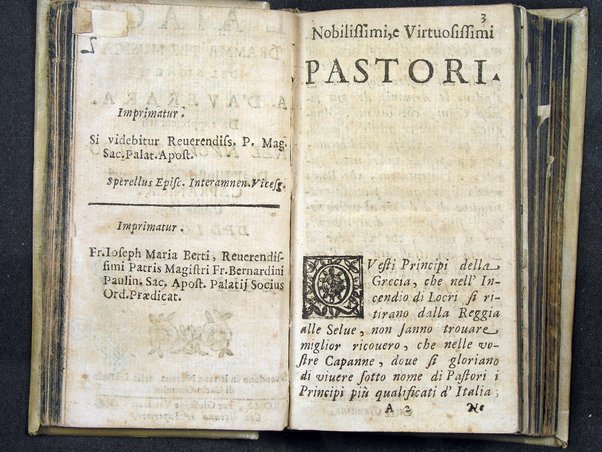 2
Imprimatur.
Si videbitur Reuerendiſs. P. Mag.
Sac. Palat. Apoſt.
Sperellus Epiſc. Interamnen. Viceſg.
Imprimatur.
Fr. Ioſeph Maria Berti, Reuerendiſ-
ſimi Patris Magiſtri Fr. Bernardini
Paulin. Sac. Apoſt. Palatij Socius
Ord. Prædicat.
3
Nobiliſſimi, e Virtuoſiſſimi
PASTORI.
QVeſti Principi della
Grecia, che nell' In-
cendio di Locri ſi ri-
tirano dalla Reggia
alle Selue, non ſanno trouare
miglior ricouero, che nelle vo-
ſtre Capanne, doue ſi gloriano
di viuere ſotto nome di Paſtori i
Principi più qualificati d' Italia;
A 2 Ne